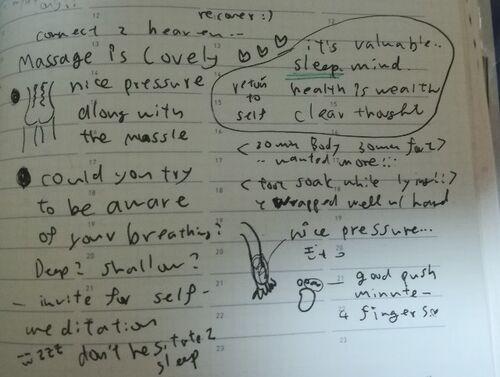 recover :)
connect 2 heaven...
Massage is Lovely ♡ ♡ ♡
nice pressure
along with
the massle
it's valuable..
sleep mind
return to self
health is wealth
clear thought
<30min Body 30min foot>
.. wanted more!!
<foot soak while lying!!>
wrapped well w/ hand
could you try
to be aware
of your breathing?
Deep? shallow?
- invite for self-
meditation
zzz don't hesitate 2
sleep
nice pressure...
good push
minute-
4 fingers